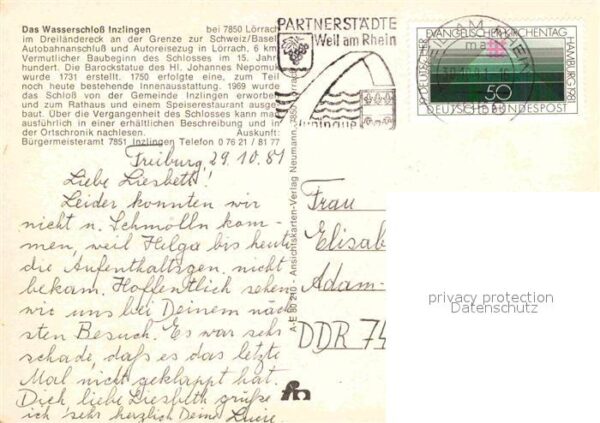 Das Wasserschloß Inzlingen bei 7850 Lörrach
im Dreiländereck an der Grenze zur Schweiz/Basel
Autobahnanschluß und Autoreisezug in Lörrach, 6 km
Vermutlicher Baubeginn des Schlosses im 15. Jahr-
hundert. Die Barockstatue des Hl. Johannes Nepomuk
wurde 1731 erstellt. 1750 erfolgte eine, zum Teil
noch heute bestehende Innenausstattung. 1969 wurde
das Schloß von der Gemeinde Inzlingen erworben
und zum Rathaus und einem Speiserestaurant ausge-
baut. Über die Vergangenheit des Schlosses kann man
ausführlich in einer erhältlichen Beschreibung und in
der Ortschronik nachlesen. Auskunft:
Bürgermeisteramt 7851 Inzlingen Telefon 0 76 21 / 81 77
PARTNERSTÄDTE
Weil am Rhein
Huningue
EVANGELISCHER KIRCHENTAG
HAMBURG 1981
50
DEUTSCHE BUNDESPOST
Freiburg, 29.10.81
Liebe Liesbeth!
Leider konnten wir
nicht n. Schmölln kom-
men, weil Helga bis heute
die Aufenthaltsgen. nicht
bekam. Hoffentlich sehen
wir uns bei Deinem näch
sten Besuch. Es war sehr
schade, daß es das letzte
Mal nicht geklappt hat.
Dich liebe Liesbeth grüße
ich sehr herzlich Deine
A-E 80 210 - Ansichtskarten-Verlag Neumann, 785
Frau
Elisab
Adam-
DDR 74
privacy protection
Datenschutz